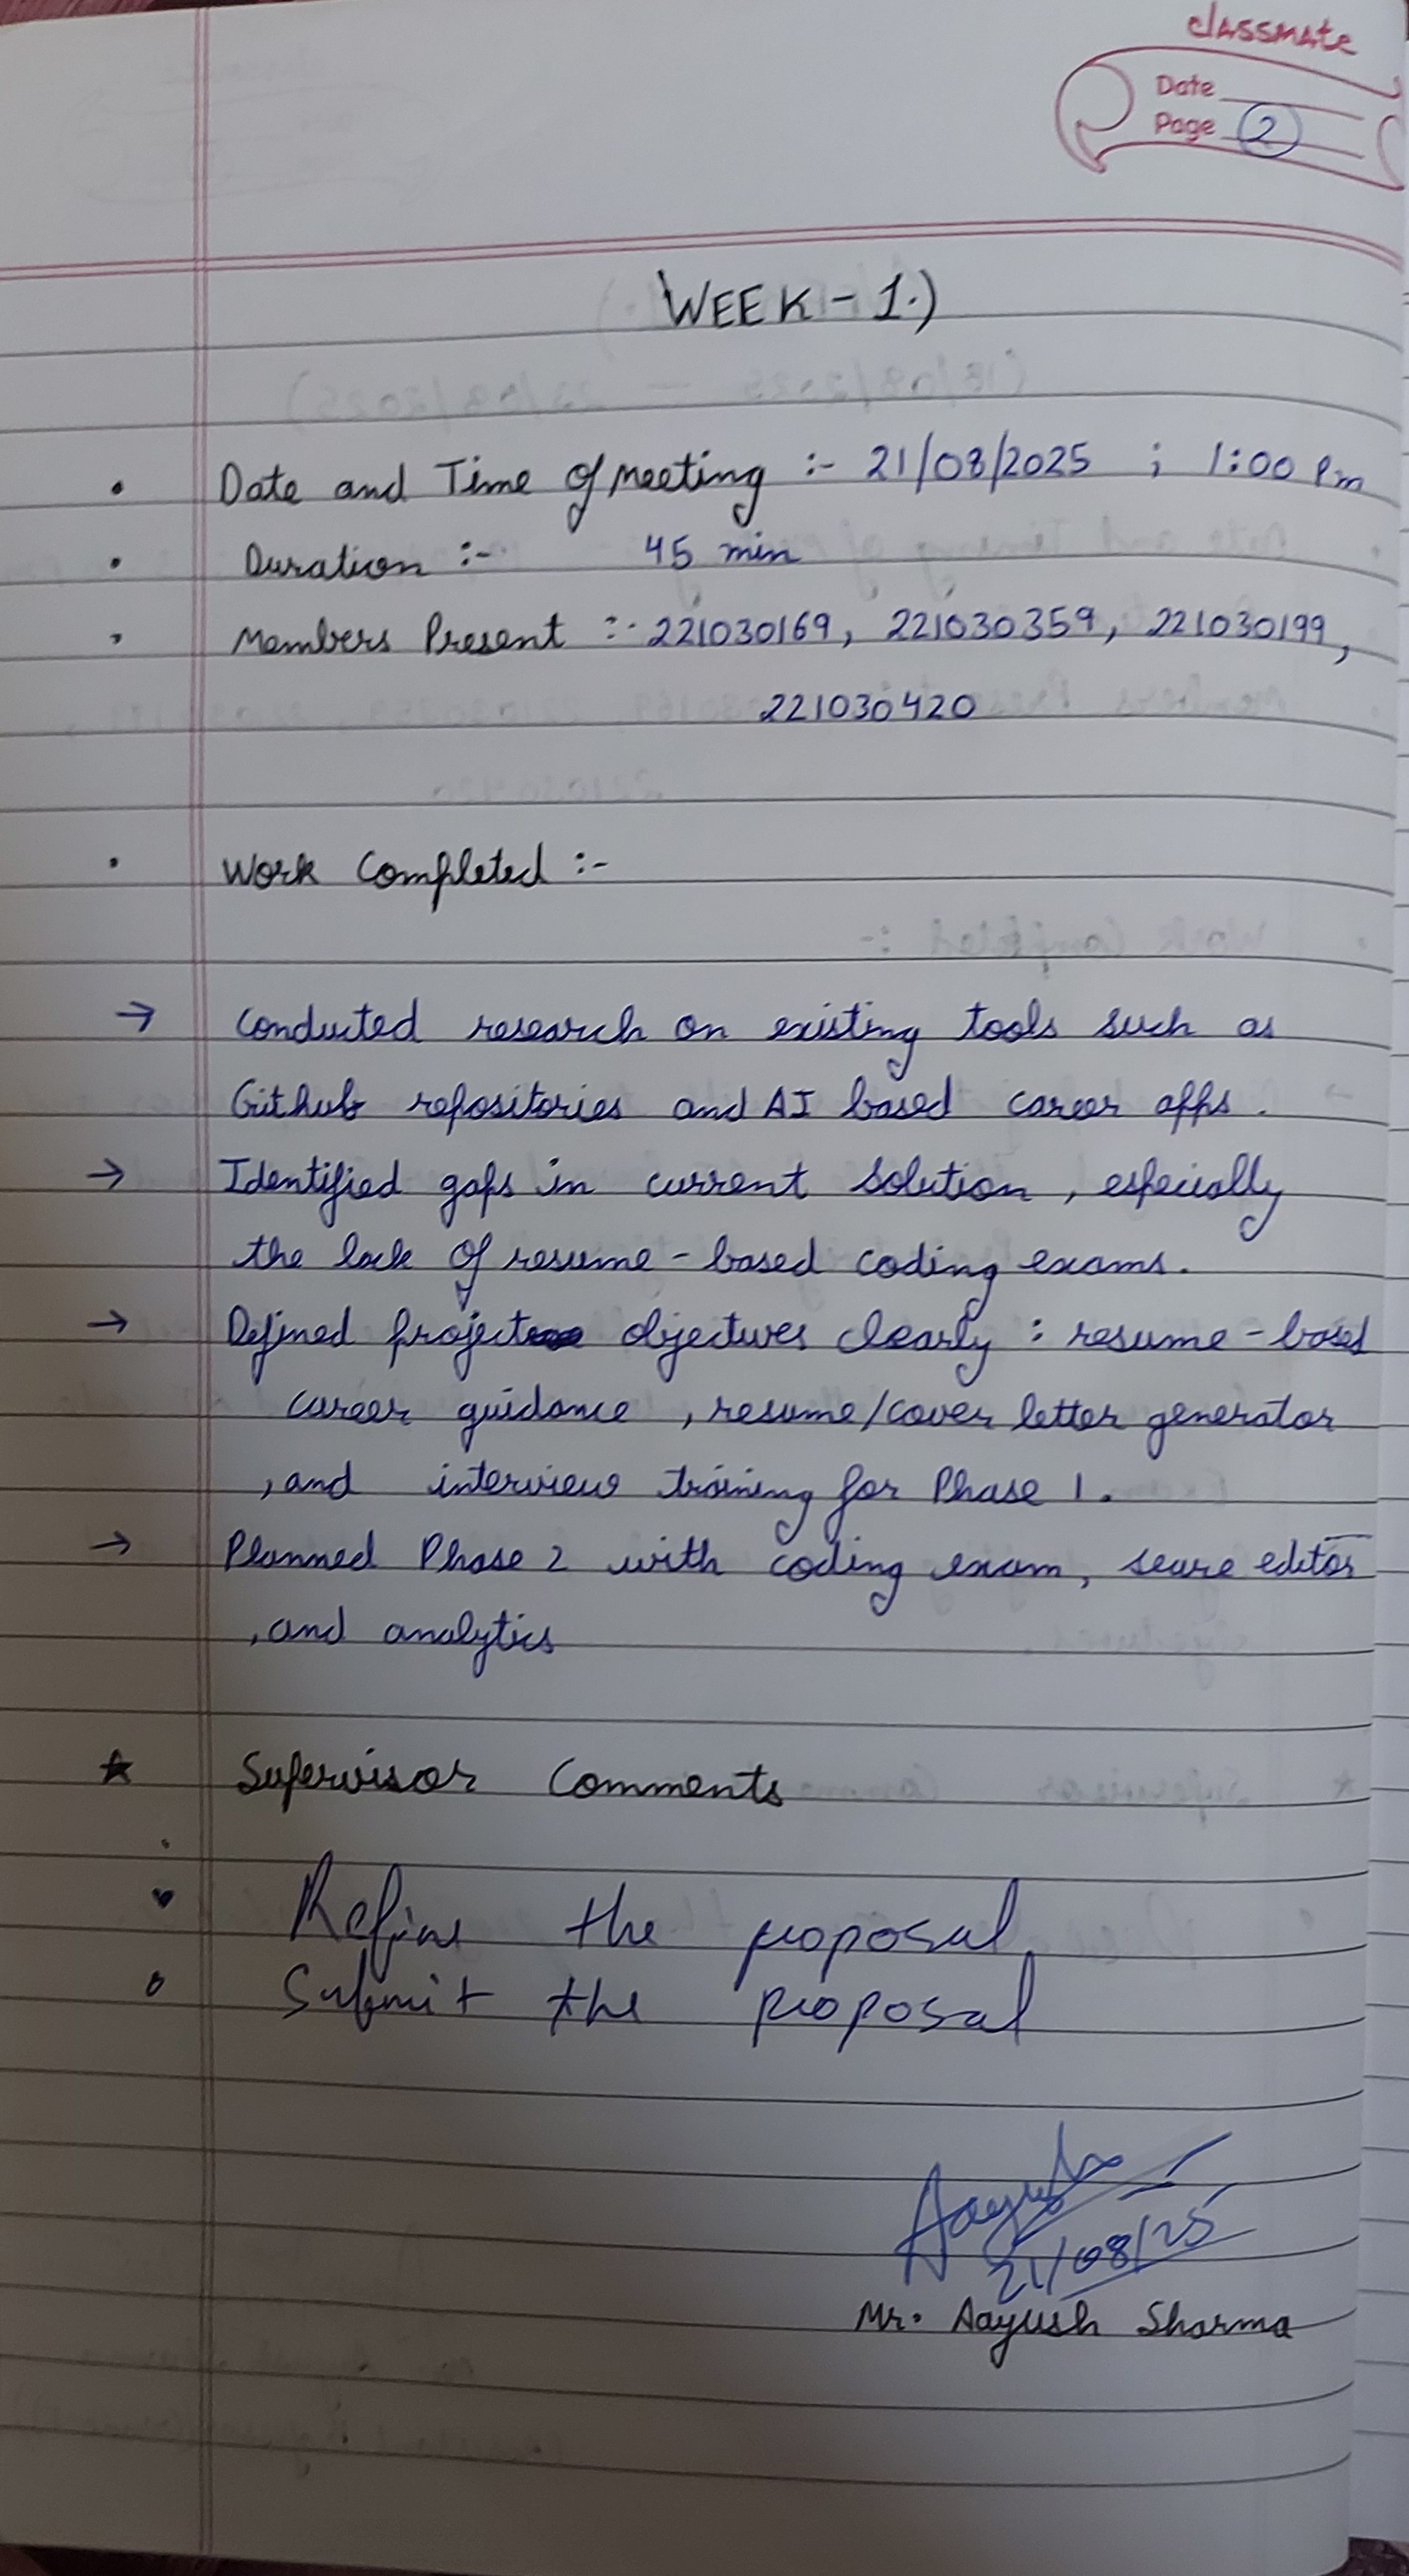 classmate
Date
Page 2
WEEK - 1.)
• Date and Time of Meeting :- 21/08/2025 ; 1:00 Pm
• Duration :- 45 min
• Members Present :- 221030169, 221030359, 221030199,
221030420
• Work Completed :-
→ Conducted research on existing tools such as
Github repositories and AI based career apps.
→ Identified gaps in current solution, especially
the lack of resume-based coding exams.
→ Defined project objectives clearly : resume-based
career guidance, resume/cover letter generator
, and interview training for Phase 1.
→ Planned Phase 2 with coding exam, secure editor
, and analytics
★ Supervisor Comments
• Refine the proposal
• Submit the proposal
Aayush
21/08/25
Mr. Aayush Sharma